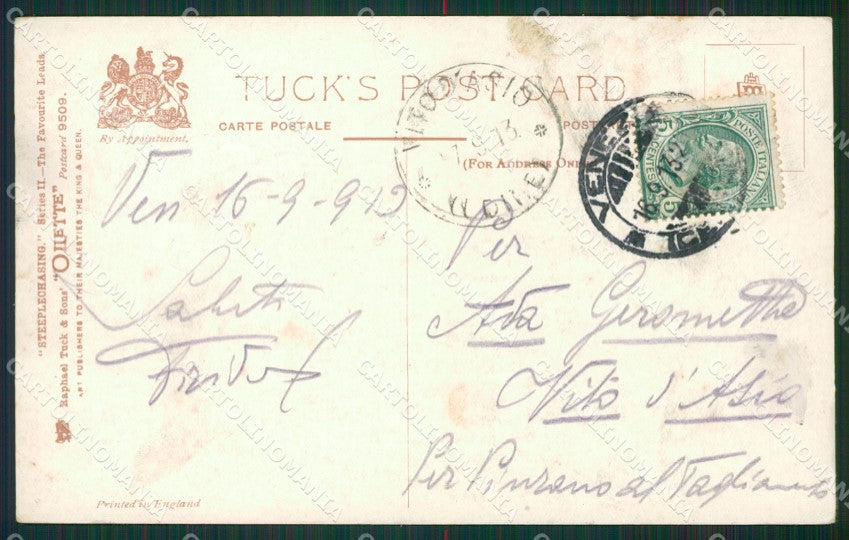 TUCK'S POST CARD
CARTE POSTALE
POST
(FOR ADDRESS ONL
By Appointment.
"STEEPLECHASING." Series II.—The Favourite Leads.
Raphael Tuck & Sons' "OILETTE" Postcard 9509.
ART PUBLISHERS TO THEIR MAJESTIES THE KING & QUEEN.
Printed in England
VITO D'ASIO
9.13
UDINE
VENEZ
16.9.13.2
POSTE ITALIANE
CENTES
5
Ven 16-9-913
Saluti
Per
Ada Gerometta
Vito d'Asio
Per Pinzano al Tagliamento
CARTOLINOMANIA